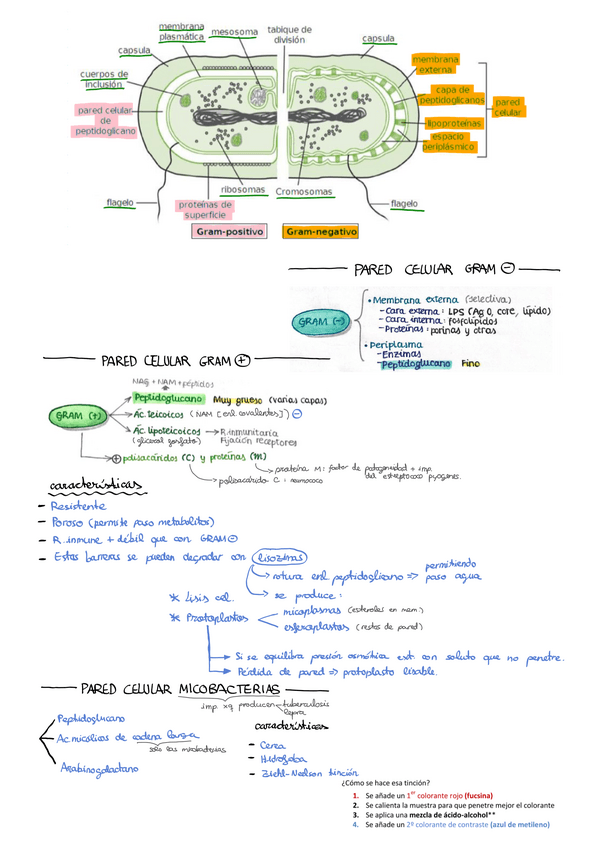 membrana
plasmática
mesosoma
tabique de
división
capsula
capsula
membrana
externa
cuerpos de
inclusión
capa de
peptidoglicanos
pared
celular
pared celular
de
peptidoglicano
lipoproteínas
espacio
periplásmico
flagelo
ribosomas
Cromosomas
flagelo
proteínas de
superficie
Gram-positivo
Gram-negativo
PARED CELULAR GRAM ⊖
GRAM (-)
• Membrana externa (selectiva)
- Cara externa: LPS (Ag O, core, lípido)
- Cara interna: fosfolípidos
- Proteínas: porinas y otras
• Periplasma
- Enzimas
- Peptidoglucano Fino
PARED CELULAR GRAM ⊕
NAG + NAM + péptidos
GRAM (+)
Peptidoglucano Muy grueso (varias capas)
Ác. teicoicos (NAM [enl. covalentes]) ⊖
Ác. lipoteicoicos → R. inmunitaria
(glicerol fosfato) Fijación receptores
⊕ polisacáridos (C) y proteínas (M)
proteína M: factor de patogenidad + imp.
del estreptococo pyogenes.
polisacárido C: neumococo
características
- Resistente
- Poroso (permite paso metabolitos)
- R. inmune + débil que con GRAM ⊖
- Estas barreras se pueden degradar con lisozimas
rotura enl. peptidoglicano => permitiendo
paso agua
se produce:
* Lisis cel.
* Protoplastos
micoplasmas (esteroles en mem.)
esferoplastos (restos de pared)
Si se equilibra presión osmótica ext. con soluto que no penetre.
Pérdida de pared => protoplasto lisable.
PARED CELULAR MICOBACTERIAS
imp. xq producen tuberculosis
lepra
Peptidoglucano
Ac. micólicos de cadena larga
solo las micobacterias
Arabinogalactano
características
- Cerea
- Hidrófoba
- Ziehl-Neelson tinción
¿Cómo se hace esa tinción?
1. Se añade un 1er colorante rojo (fucsina)
2. Se calienta la muestra para que penetre mejor el colorante
3. Se aplica una mezcla de ácido-alcohol**
4. Se añade un 2º colorante de contraste (azul de metileno)